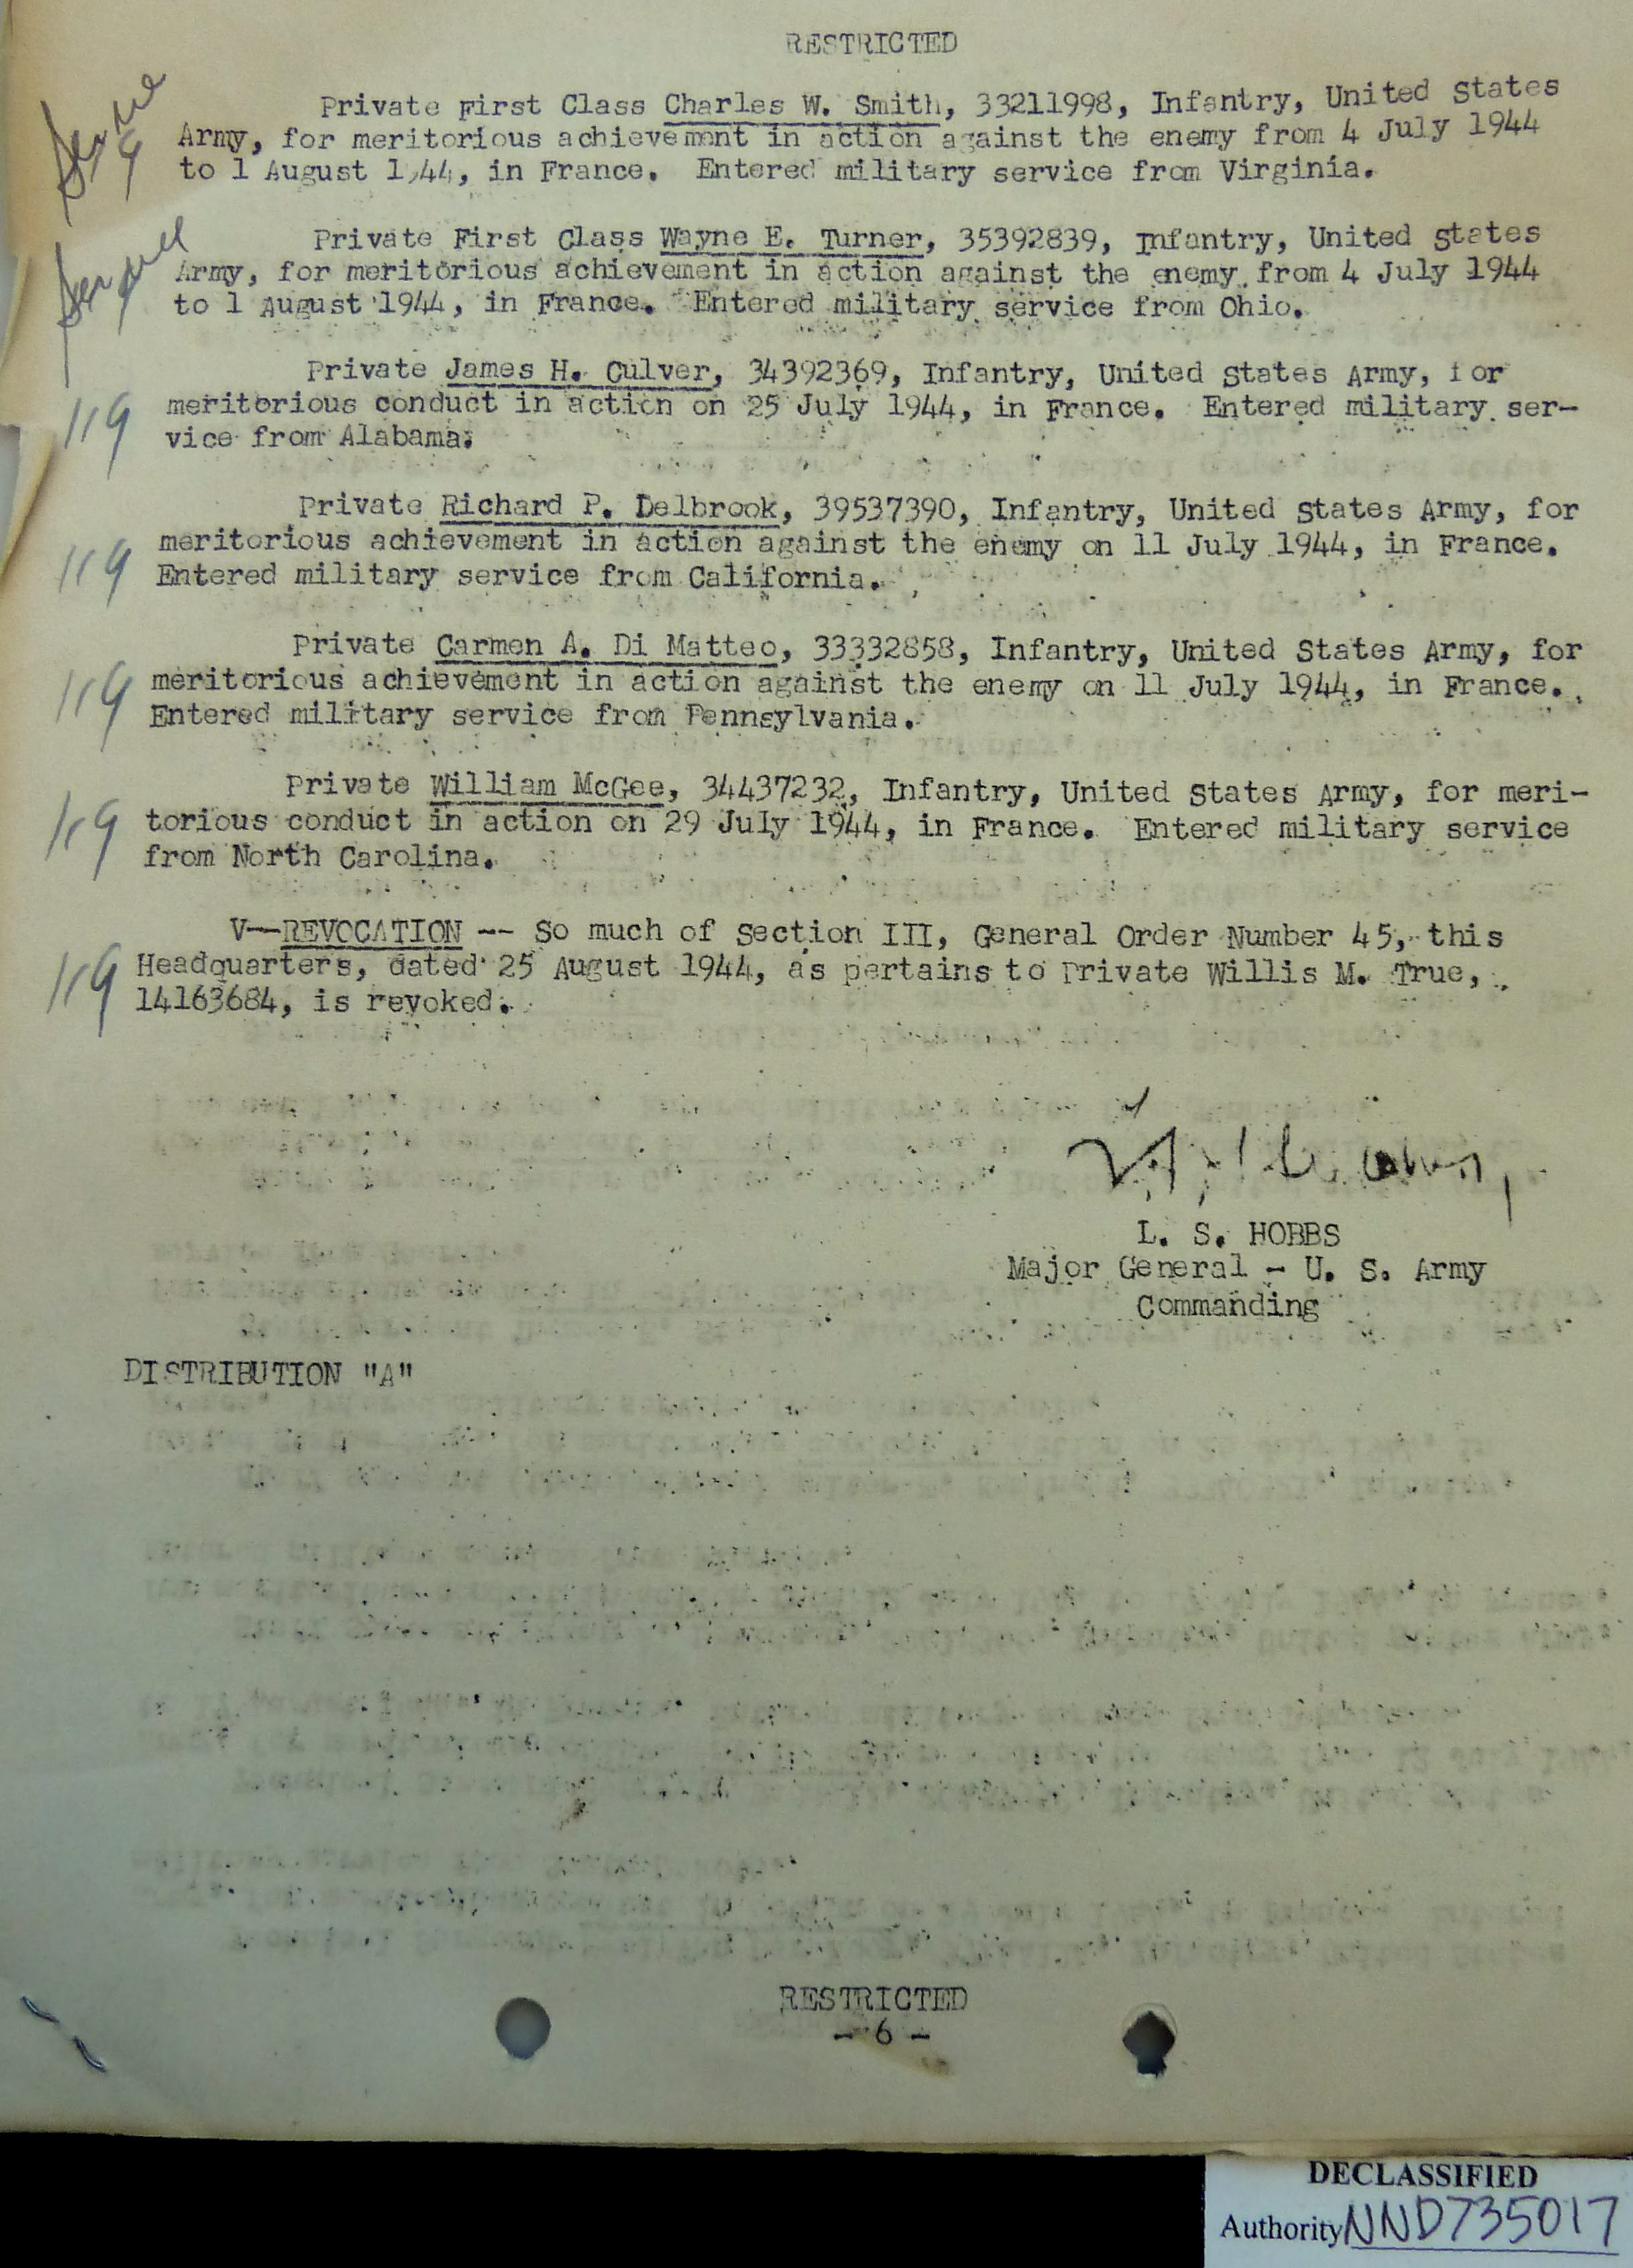 RESTRICTED
Private First Class Charles W. Smith, 33211998, Infantry, United States
Army, for meritorious achievement in action against the enemy from 4 July 1944
to 1 August 1944, in France. Entered military service from Virginia.
Private First Class Wayne E. Turner, 35392839, Infantry, United States
Army, for meritorious achievement in action against the enemy from 4 July 1944
to 1 August 1944, in France. Entered military service from Ohio.
Private James H. Culver, 34392369, Infantry, United States Army, for
119 meritorious conduct in action on 25 July 1944, in France. Entered military ser-
vice from Alabama.
Private Richard P. Delbrook, 39537390, Infantry, United States Army, for
119 meritorious achievement in action against the enemy on 11 July 1944, in France.
Entered military service from California.
Private Carmen A. Di Matteo, 33332858, Infantry, United States Army, for
119 meritorious achievement in action against the enemy on 11 July 1944, in France.
Entered military service from Pennsylvania.
Private William McGee, 34437232, Infantry, United States Army, for meri-
119 torious conduct in action on 29 July 1944, in France. Entered military service
from North Carolina.
V--REVOCATION -- So much of Section III, General Order Number 45, this
119 Headquarters, dated 25 August 1944, as pertains to Private Willis M. True,
14163684, is revoked.
L. S. HOBBS
Major General - U. S. Army
Commanding
DISTRIBUTION "A"
RESTRICTED
- 6 -
DECLASSIFIED
Authority NND735017